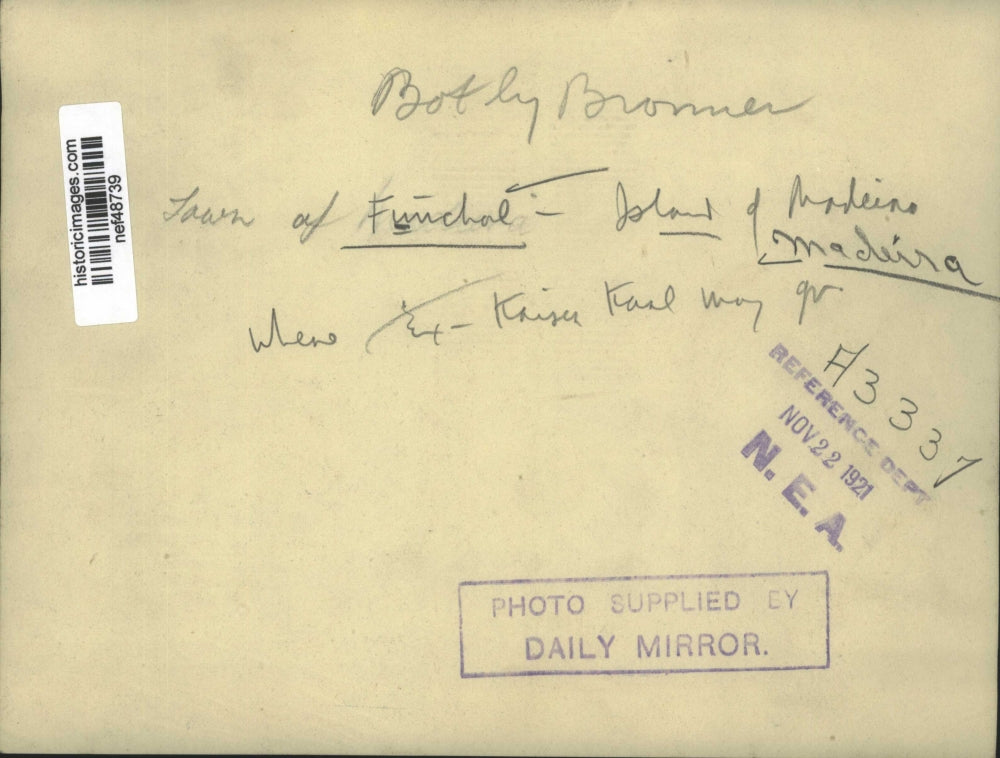 Bot by Bronner
Town of Funchal - Island of Madeira
Madeira
where Ex- Kaiser Karl may go
A3337
REFERENCE DEPT
NOV 22 1921
N. E. A.
PHOTO SUPPLIED BY
DAILY MIRROR.
historicimages.com
nef48739